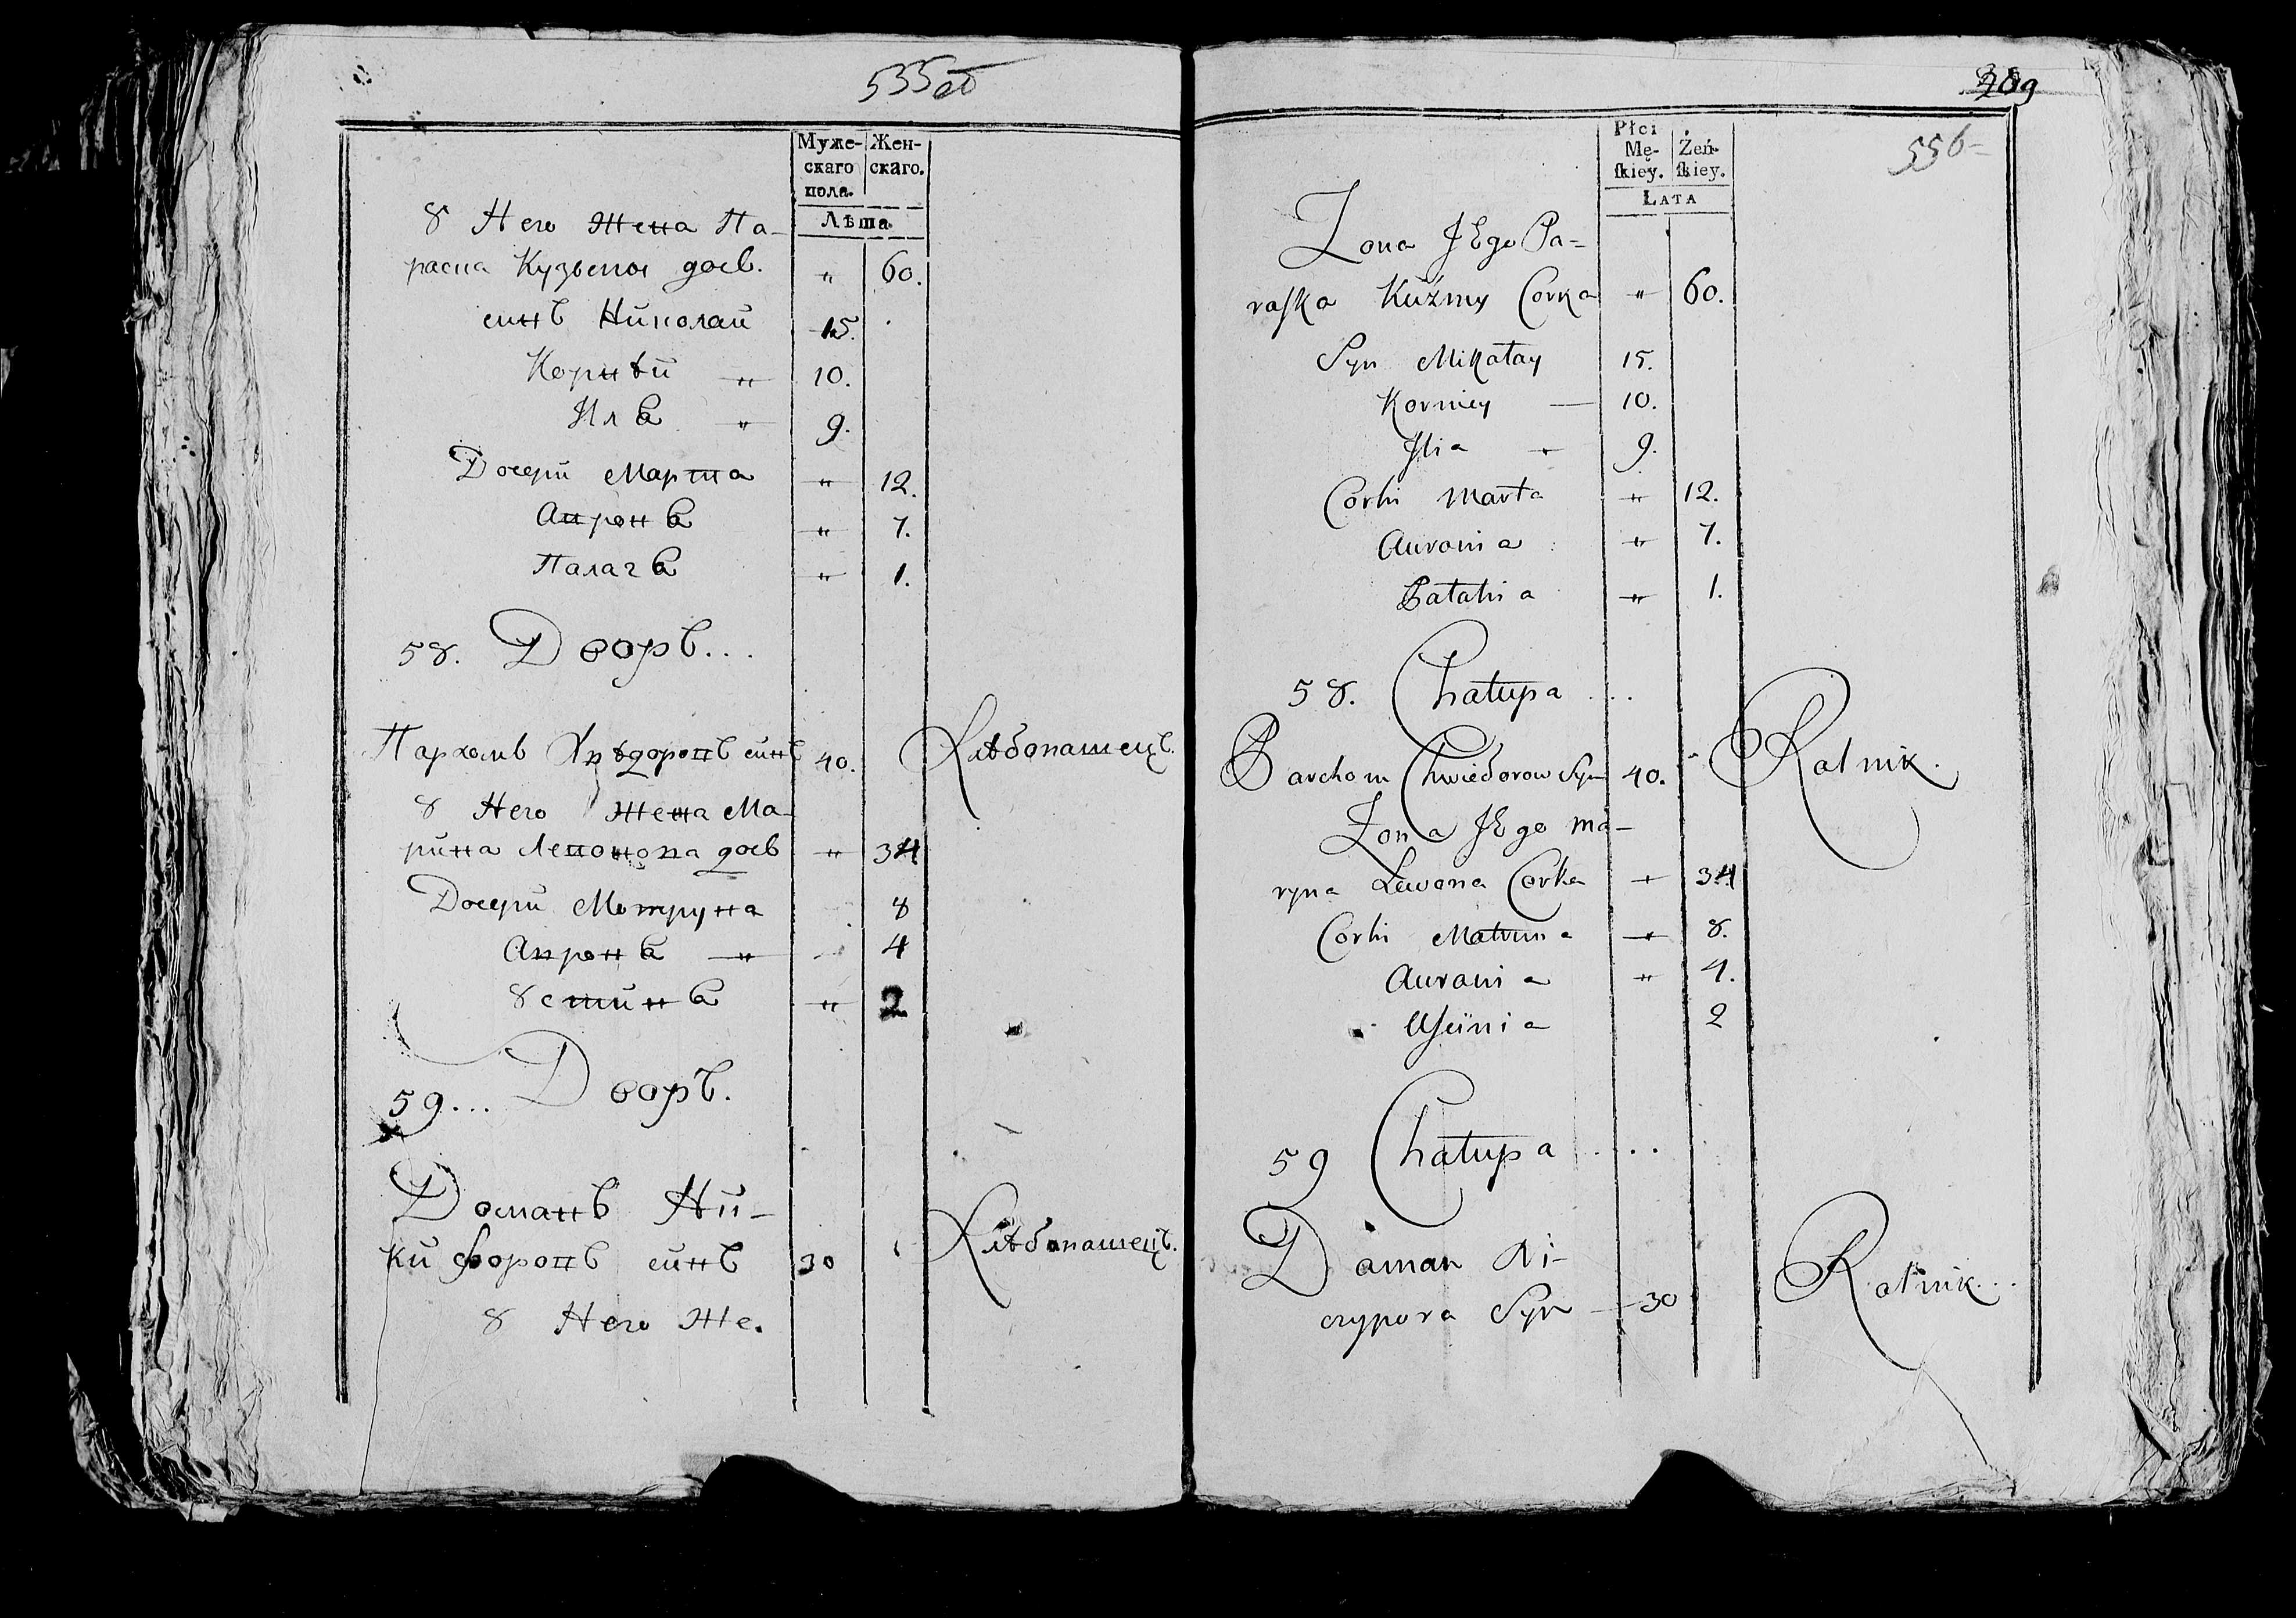 535об
Муже-
скаго
пола.
Жен-
скаго.
Лѣта
8 Него Жена Па-
раска Кузьмы дочь. " 60.
синъ Николай 15.
Корнѣй " 10.
Илѣ " 9.
Дочери Марта " 12.
Апронѣ " 7.
Палагѣ " 1.
58. Дворъ...
Пархомъ Хвѣдоровъ синъ 40. Хлѣбопашецъ.
8 Него Жена Ма-
рина Левонова дочь " 34
Дочери Мотруна 8
Апронѣ " 4
8стинѣ " 2
59... Дворъ.
Доманъ Ни-
кифоровъ синъ 30 Хлѣбопашецъ.
8 Него Же.
209
556
Płci
Mę-
ſkiey.
Żeń-
ſkiey.
LATA
Zona JEgo Pa=
raſka Kuźmy Corka " 60.
Syn Mikołay 15.
Korniey — 10.
Jlia " 9.
Corki Marta " 12.
Aurania " 7.
Pałahia " 1.
58. Chałupa ....
Parchom Chwiedorow Syn 40. Ratnik.
Zona JEgo Ma-
ryna Lewona Corka " 34
Corki Matruna " 8.
Aurania " 4.
Uſcinia 2
59 Chałupa ....
Daman Ni-
czypora Syn — 30 Ratnik...